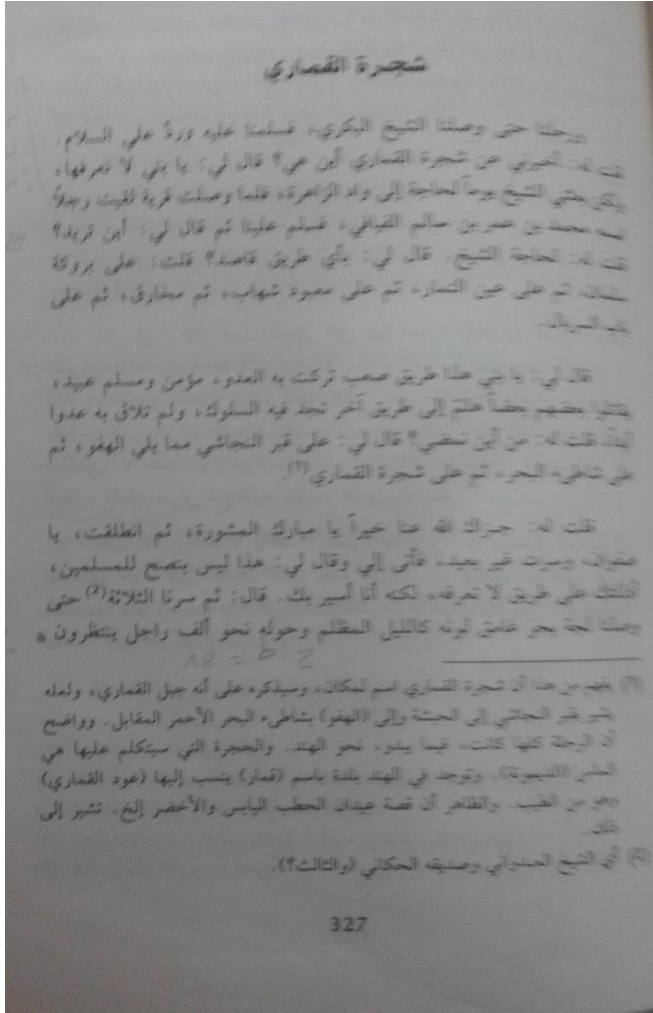 شجرة القماري
ورحلنا حتى وصلنا الشيخ البكري، فسلمنا عليه وردّ علي السلام.
قلت له: أخبرني عن شجرة القماري أين هي؟ قال لي: يا بني لا نعرفها،
ولكن بعثني الشيخ يوماً لحاجة إلى واد الزاهرة، فلما وصلت قرية لقيت رجلاً
اسمه محمد بن عمر بن سالم، فسلم علينا ثم قال لي: أين تريد؟
قلت له: لحاجة الشيخ. قال لي: بأي طريق قاصد؟ قلت: على بروكة
ثم على عين التمار، ثم على معبود شهاب، ثم مخارق، ثم على
باب السربال.
قال لي: يا بني هذا طريق صعب تركت به العدو، مؤمن ومسلم عبيد،
يقتلوا بعضهم بعضاً هلمّ إلى طريق آخر تجد فيه السلوك، ولم تلاق به عدوا
أبداً. قلت له: من أين نمضي؟ قال لي: على قبر النجاشي مما يلي الهفو، ثم
على شاطىء البحر، ثم على شجرة القماري(1).
قلت له: جزاك الله عنا خيراً يا مبارك المشورة، ثم انطلقت، يا
صفوان، وسرت غير بعيد، فأتى إلي وقال لي: هذا ليس بنصح للمسلمين،
أدلك على طريق لا تعرفه، لكنه أنا أسير بك. قال: ثم سرنا الثلاثة(2) حتى
وصلنا لجة بحر غامق لونه كالليل المظلم وحوله نحو ألف راجل ينتظرون
(1) يفهم من هذا أن شجرة القماري اسم لمكان، وسيذكره على أنه جبل القماري، ولعله
يشير بقبر النجاشي إلى الحبشة وإلى (الهفو) بشاطىء البحر الأحمر المقابل. وواضح
أن الرحلة كلها كانت، فيما يبدو، نحو الهند. والحجرة التي سيتكلم عليها هي
وتوجد في الهند بلدة باسم (قمار) ينسب إليها (عود القماري)
وهو من الطيب. والظاهر أن قصة عيدان الحطب اليابس والأخضر إلخ. تشير إلى
ذلك.
(2) أي الشيخ وصديقه الحكاني (والثالث؟).
327